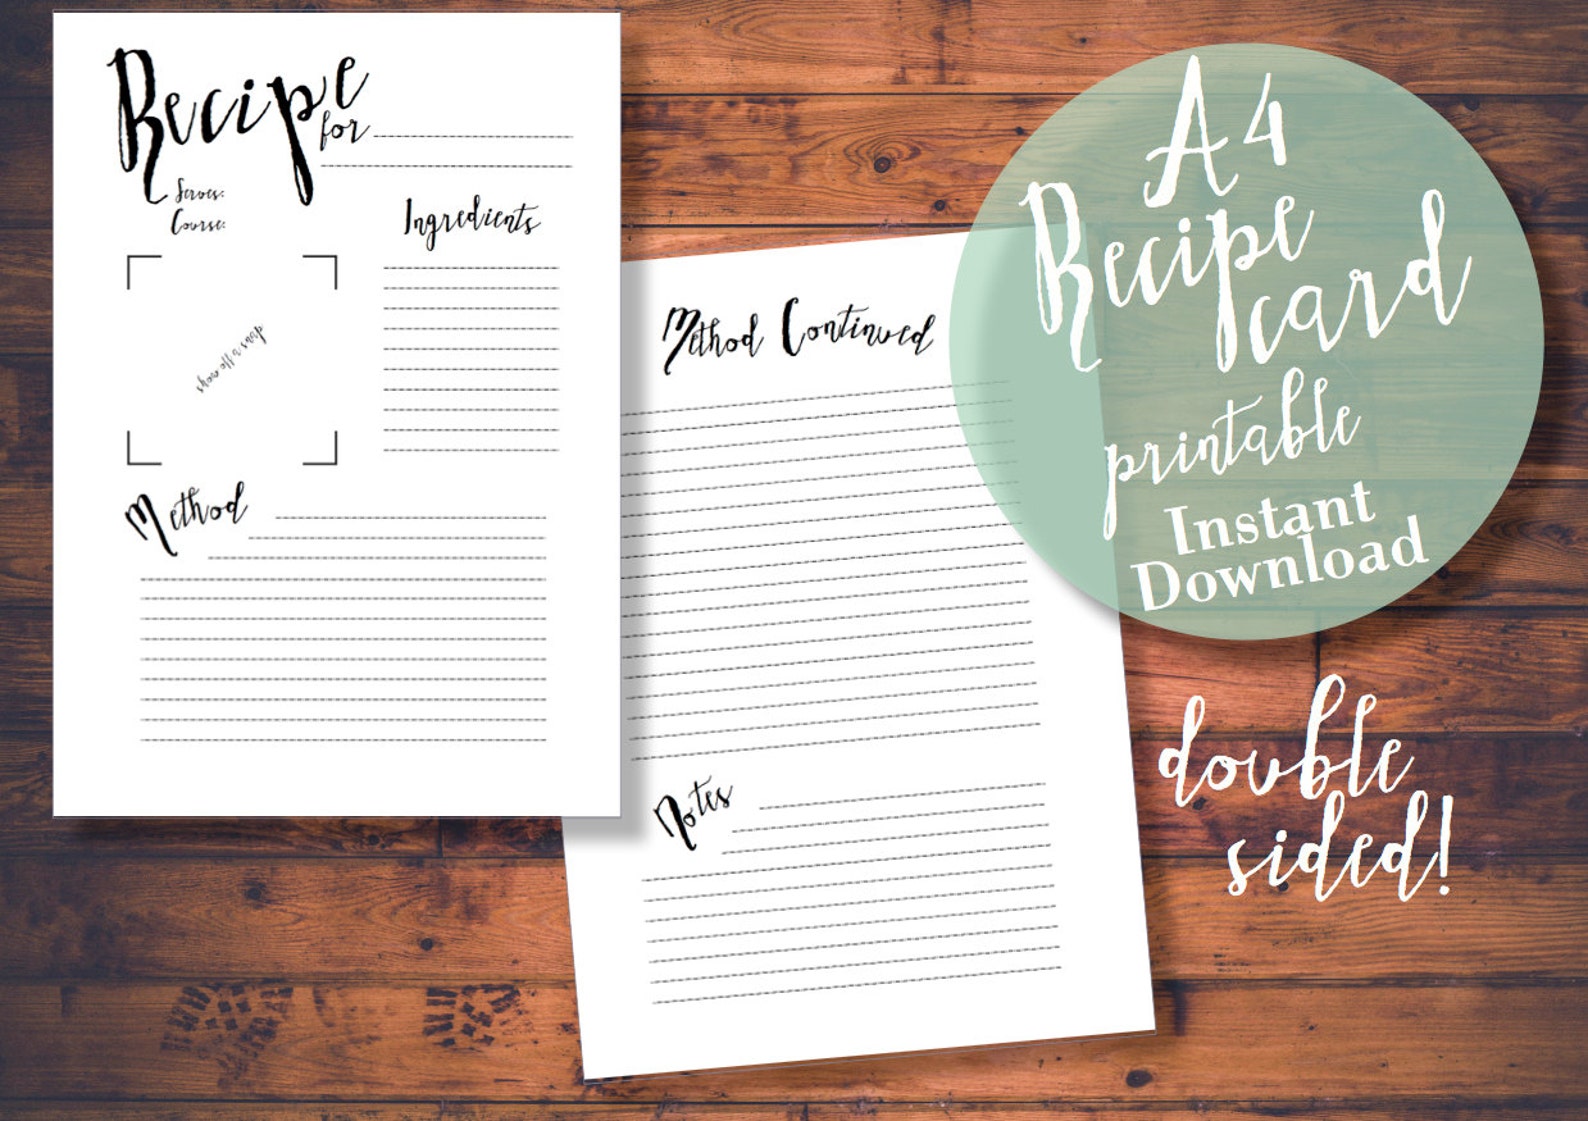 Recipe
for
Serves:
Course:
Ingredients
show off a snap
Method
Method Continued
Notes
A4
Recipe
card
printable
Instant
Download
double
sided!